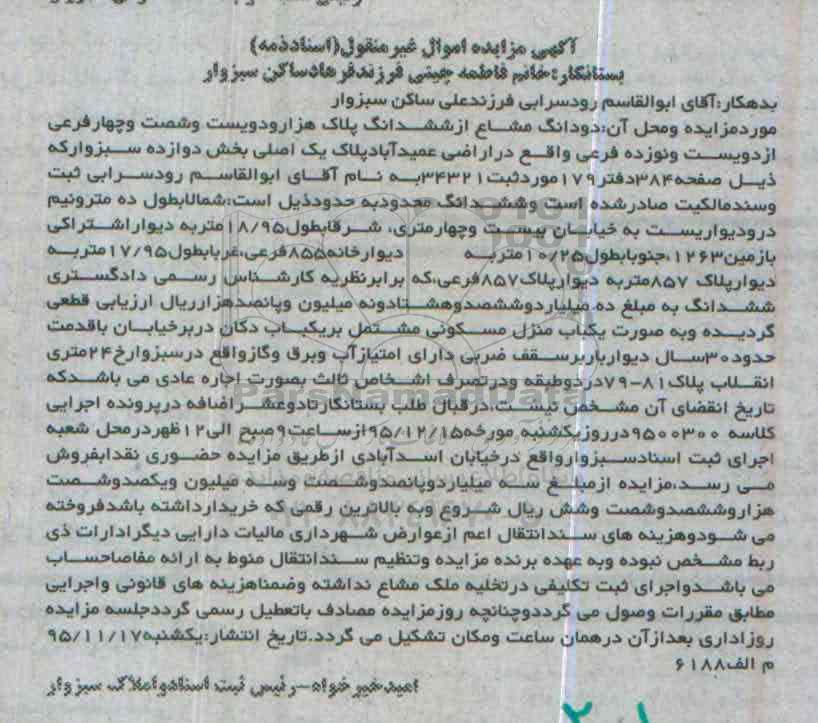 آگهی مزایده اموال غیرمنقول(اسنادذمه)
بستانکار:خانم فاطمه چینی فرزندفرهادساکن سبزوار
بدهکار:آقای ابوالقاسم رودسرابی فرزندعلی ساکن سبزوار
موردمزایده ومحل آن:دودانگ مشاع ازششدانگ پلاک هزارودویست وشصت وچهارفرعی
ازدویست ونوزده فرعی واقع دراراضی عمیدآبادپلاک یک اصلی بخش دوازده سبزوارکه
ذیل صفحه۳۸۴دفتر۱۷۹موردثبت۳۴۳۲۱به نام آقای ابوالقاسم رودسرابی ثبت
وسندمالکیت صادرشده است وششدانگ محدودبه حدودذیل است:شمالابطول ده مترونیم
درودیواریست به خیابان بیست وچهارمتری، شرقابطول۱۸/۹۵متربه دیواراشتراکی
بازمین۱۲۶۳،جنوبابطول۱۰/۲۵متربه دیوارخانه۸۵۵فرعی،غربابطول۱۷/۹۵متربه
دیوارپلاک ۸۵۷متربه دیوارپلاک۸۵۷فرعی،که برابرنظریه کارشناس رسمی دادگستری
ششدانگ به مبلغ ده میلیاردوششصدوهشتادونه میلیون وپانصدهزارریال ارزیابی قطعی
گردیده وبه صورت یکباب منزل مسکونی مشتمل بریکباب دکان دربرخیابان باقدمت
حدود۳۰سال دیوارباربرسقف ضربی دارای امتیازآب وبرق وگازواقع درسبزوارخ۲۴متری
انقلاب پلاک۸۱-۷۹دردوطبقه ودرتصرف اشخاص ثالث بصورت اجاره عادی می باشدکه
تاریخ انقضای آن مشخص نیست،درقبال طلب بستانکارتادوعشراضافه درپرونده اجرایی
کلاسه ۹۵۰۰۳۰۰درروزیکشنبه مورخه۹۵/۱۲/۱۵ازساعت۹صبح الی۱۲ظهردرمحل شعبه
اجرای ثبت اسنادسبزوارواقع درخیابان اسدآبادی ازطریق مزایده حضوری نقدابفروش
می رسد،مزایده ازمبلغ سه میلیاردوپانصدوشصت وسه میلیون ویکصدوشصت
هزاروششصدوشصت وشش ریال شروع وبه بالاترین رقمی که خریدارداشته باشدفروخته
می شودوهزینه های سندانتقال اعم ازعوارض شهرداری مالیات دارایی دیگرادارات ذی
ربط مشخص نبوده وبه عهده برنده مزایده وتنظیم سندانتقال منوط به ارائه مفاصاحساب
می باشدواجرای ثبت تکلیفی درتخلیه ملک مشاع نداشته وضمناهزینه های قانونی واجرایی
مطابق مقررات وصول می گرددوچنانچه روزمزایده مصادف باتعطیل رسمی گرددجلسه مزایده
روزاداری بعدازآن درهمان ساعت ومکان تشکیل می گردد.تاریخ انتشار:یکشنبه۹۵/۱۱/۱۷
م الف۶۱۸۸
امیدخیرخواه-رئیس ثبت اسنادواملاک سبزوار
ParsNamadData